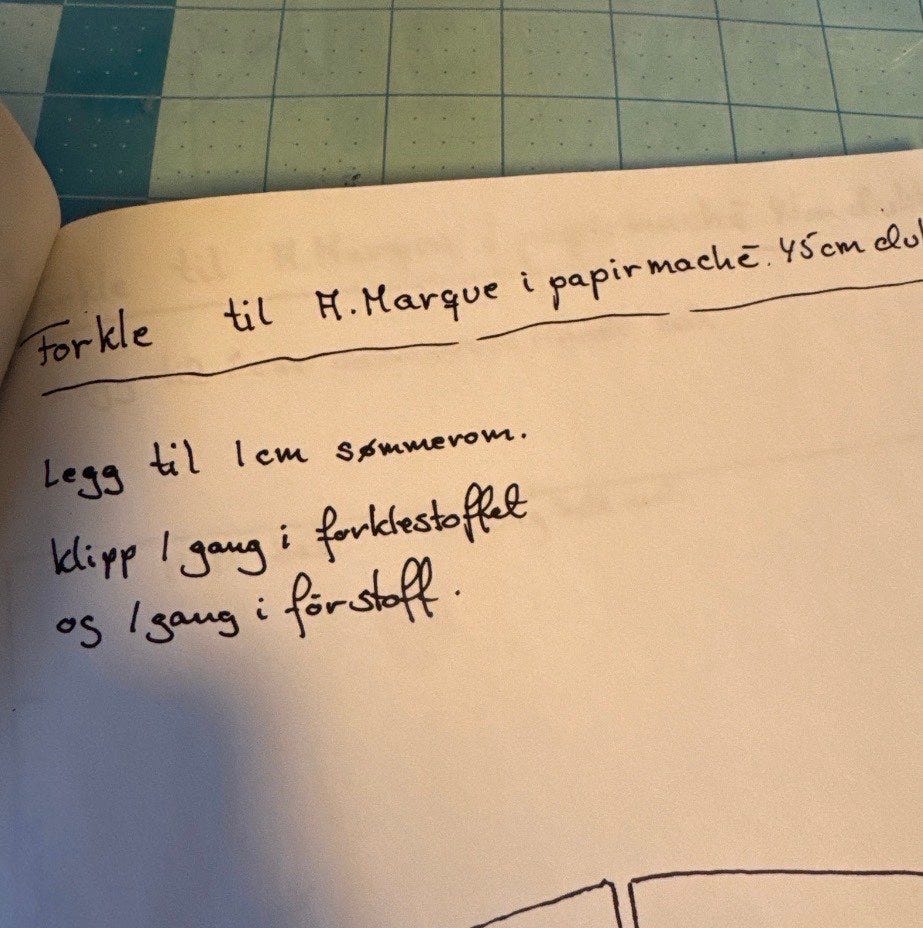 Forkle til A. Marque i papirmachē. 45cm du
Legg til 1cm sømmerom.
klipp 1 gang i forklestoffet
og 1 gang i fôrstoff.